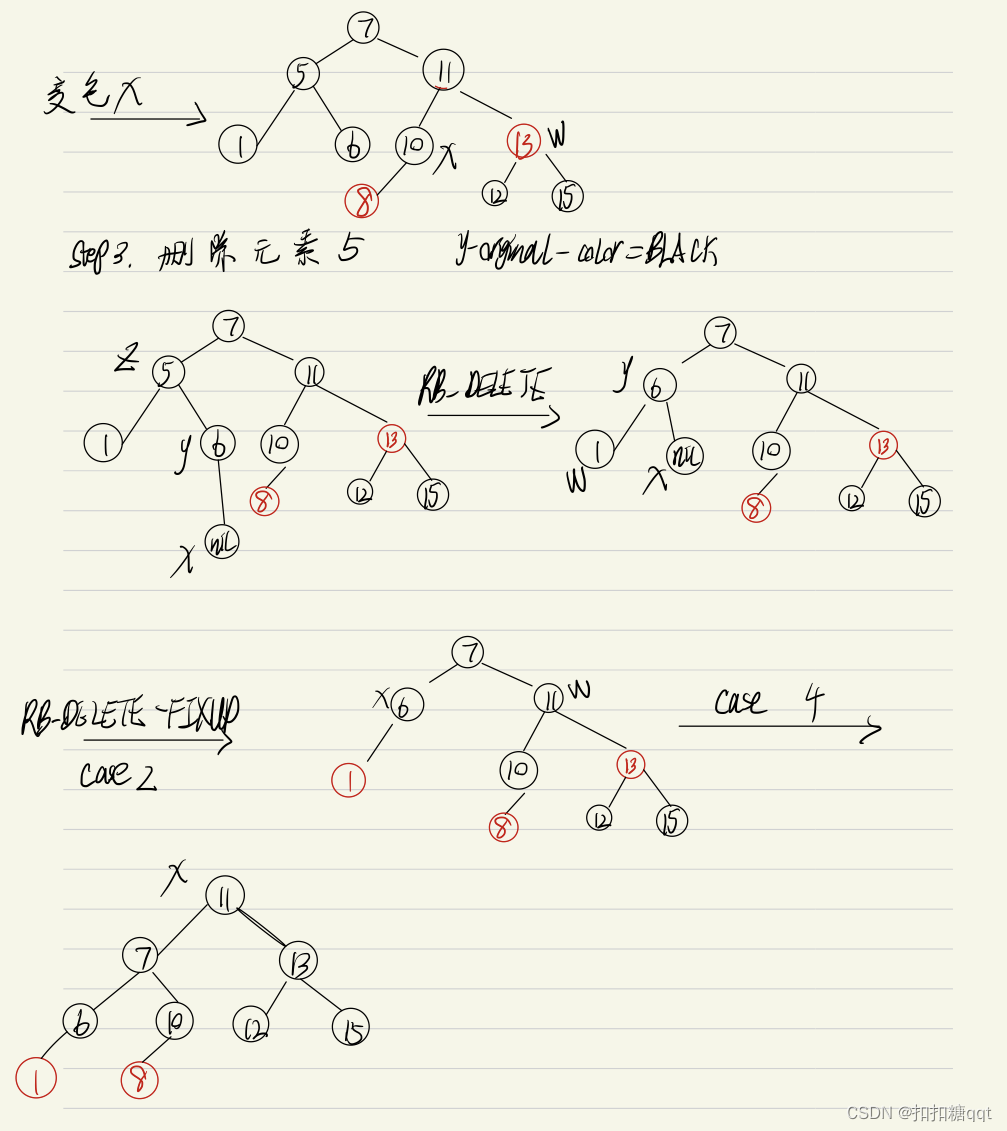 7
5 11
变色 X
1 6 10 X 13 W
8 12 15
Step 3. 删除元素 5 y-orginal-color=BLACK
7 7
Z 5 11 RB-DELETE y 6 11
1 y 6 10 13 W 1 X nil 10 13
8 12 15 8 12 15
X nil
7
RB-DELETE-FIXUP X 6 11 W case 4
case 2 1 10 13
8 12 15
X 11
7 13
6 10 12 15
1 8
CSDN @扣扣糖qqt